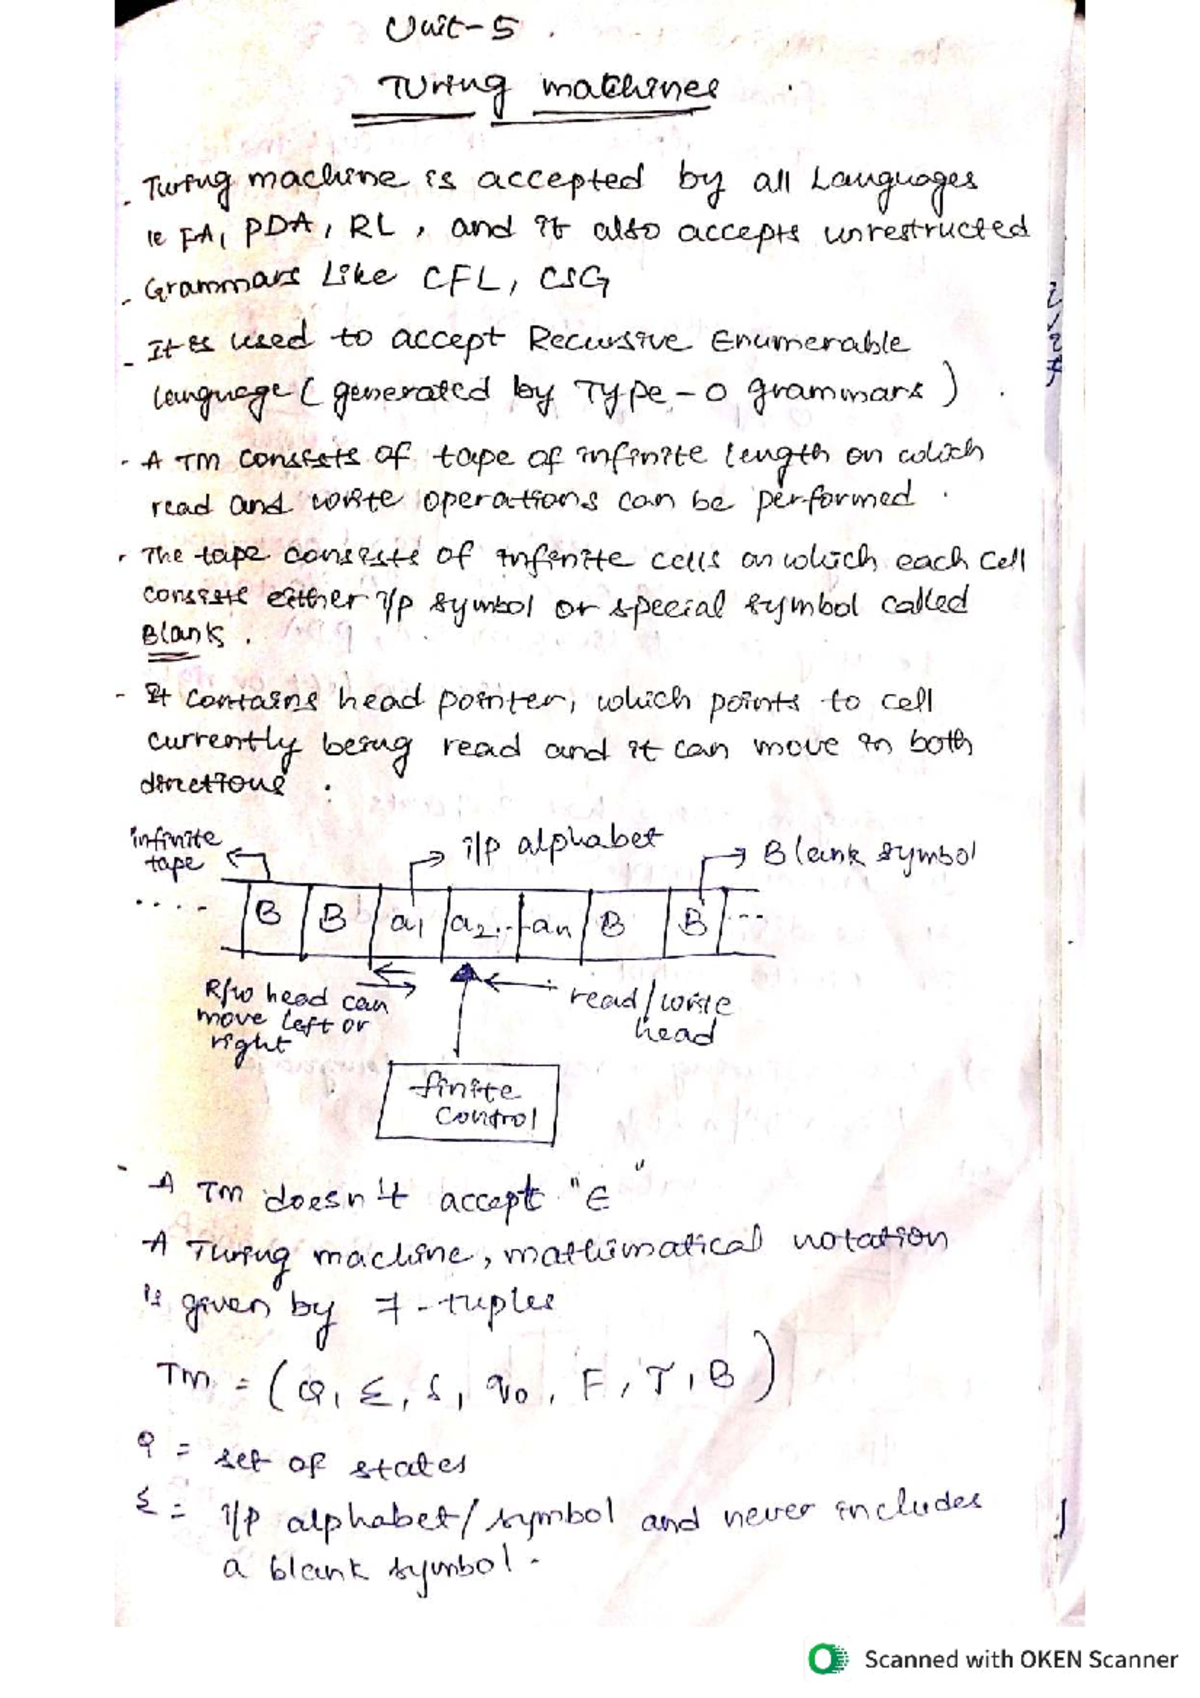 Unit-5.
Turing machines
. Turing machine is accepted by all Languages
ie FA, PDA, RL, and it also accepts unrestructed
- Grammars Like CFL, CSG
- It is used to accept Recursive Enumerable
language (generated by Type-0 grammars).
- A TM consists of tape of infinite length on which
read and write operations can be performed.
- The tape consists of infinite cells on which each cell
consists either i/p symbol or special symbol called
Blank.
- It contains head pointer, which points to cell
currently being read and it can move in both
directions.
infinite
tape
i/p alphabet
Blank symbol
.... B B a1 a2.. an B B ...
R/w head can
move left or
right
read/write
head
finite
control
- A TM doesn't accept "ϵ"
A Turing machine, mathimatical notation
is given by 7-tuples
TM = (Q, Σ, δ, q0, F, T, B)
Q = set of states
Σ = i/p alphabet/symbol and never includes
a blank symbol.
Scanned with OKEN Scanner